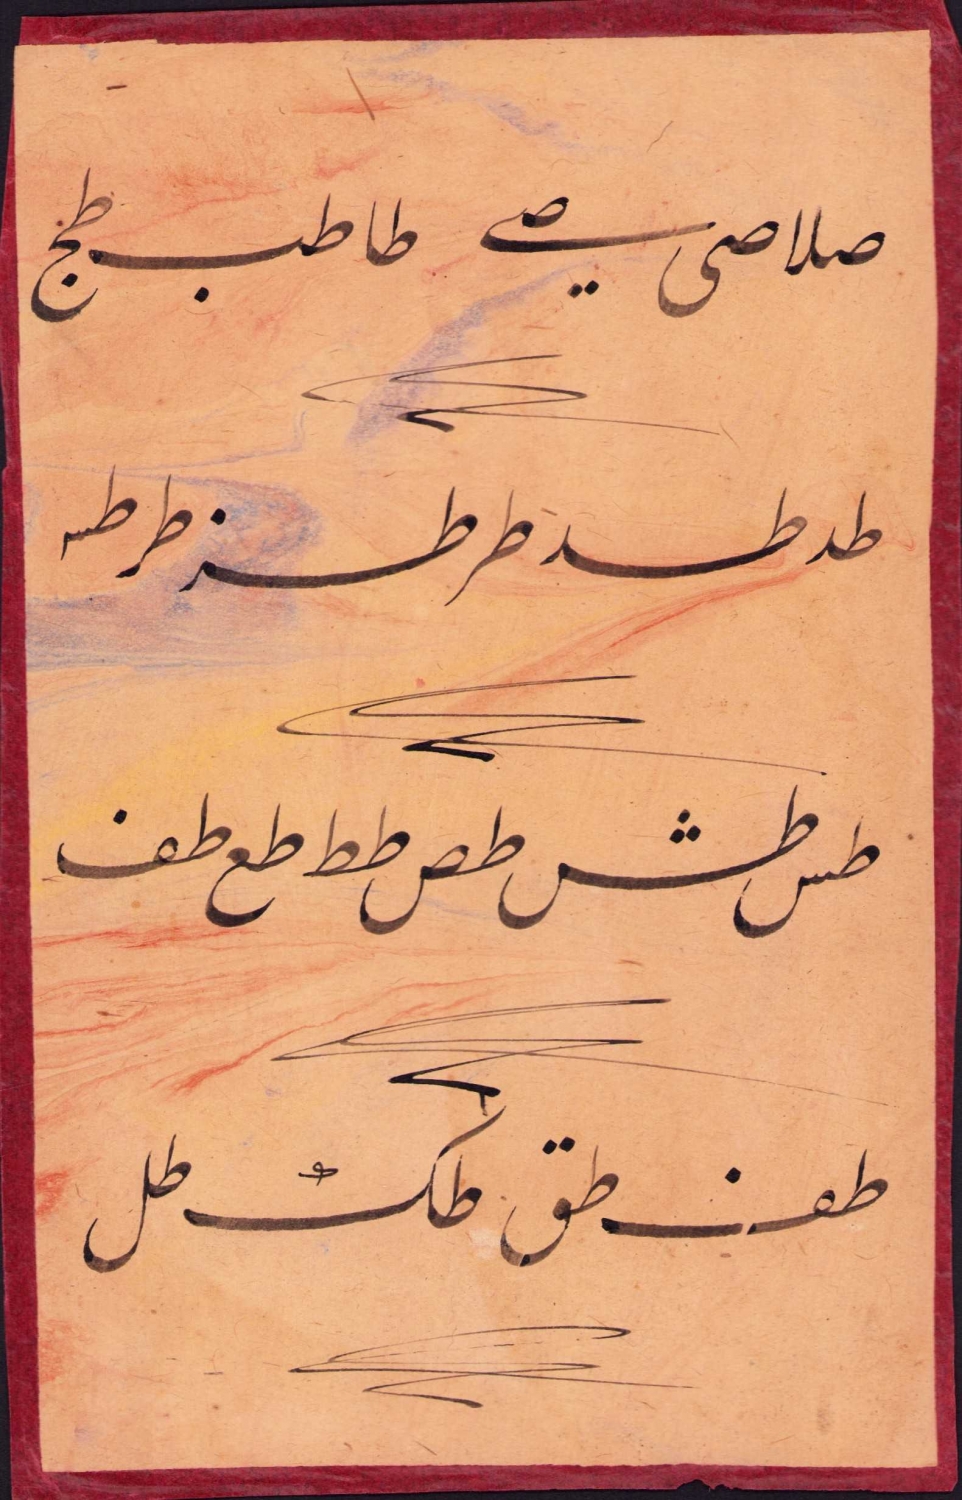 صلا صی صے طا طب طج
طد طد طر طز طر طس
طس طش طص طط طع طف
طف طق طک طل